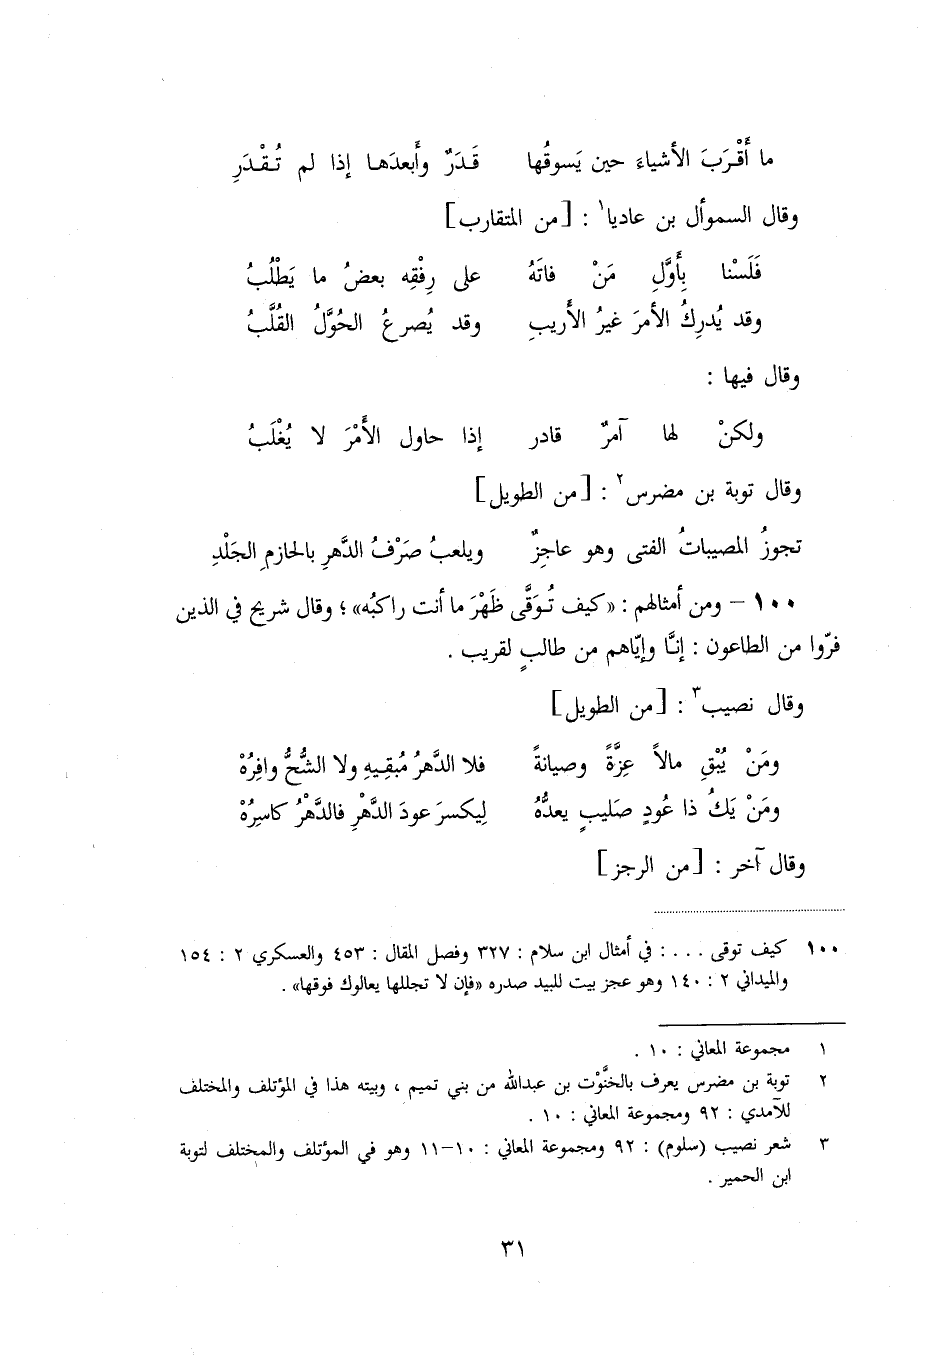 ما أَقْرَبَ الأشياءَ حين يَسوقُها قَدَرٌ وأَبعدَها إذا لم تُقْدَرِ
وقال السموأل بن عاديا١ : [من المتقارب]
فَلَسْنا بِأَوَّلِ مَنْ فاتَهُ على رِفْقِه بعضُ ما يَطْلُبُ
وقد يُدرِكُ الأمرَ غيرُ الأَريبِ وقد يُصرعُ الحُوَّلُ القُلَّبُ
وقال فيها :
ولكنْ لها آمرٌ قادر إذا حاول الأَمْرَ لا يُغْلَبُ
وقال توبة بن مضرس٢ : [من الطويل]
تجوزُ المصيباتُ الفتى وهو عاجِزٌ ويلعبُ صَرْفُ الدَّهرِ بالحازمِ الجَلْدِ
١٠٠ – ومن أمثالهم : «كيف تُوَقَّى ظَهْرَ ما أنت راكبُه» ؛ وقال شريح في الذين
فرّوا من الطاعون : إنَّا وإيّاهم من طالبٍ لقريب .
وقال نصيب٣ : [من الطويل]
ومَنْ يُبْقِ مالاً عِزَّةً وصيانةً فلا الدَّهرُ مُبقِيهِ ولا الشُّحُّ وافِرُهْ
ومَنْ يَكُ ذا عُودٍ صَليبٍ يعدُّهُ لِيكسرَ عودَ الدَّهْرِ فالدَّهْرُ كاسِرُهْ
وقال آخر : [من الرجز]
١٠٠ كيف توقى . . . : في أمثال ابن سلام : ٣٢٧ وفصل المقال : ٤٥٣ والعسكري ٢ : ١٥٤
والميداني ٢ : ١٤٠ وهو عجز بيت للبيد صدره «فإن لا تجللها يعالوك فوقها» .
١ مجموعة المعاني : ١٠ .
٢ توبة بن مضرس يعرف بالخنَّوْت بن عبدالله من بني تميم ، وبيته هذا في المؤتلف والمختلف
للآمدي : ٩٢ ومجموعة المعاني : ١٠ .
٣ شعر نصيب (سلوم) : ٩٢ ومجموعة المعاني : ١٠–١١ وهو في المؤتلف والمختلف لتوبة
ابن الحمير .
٣١